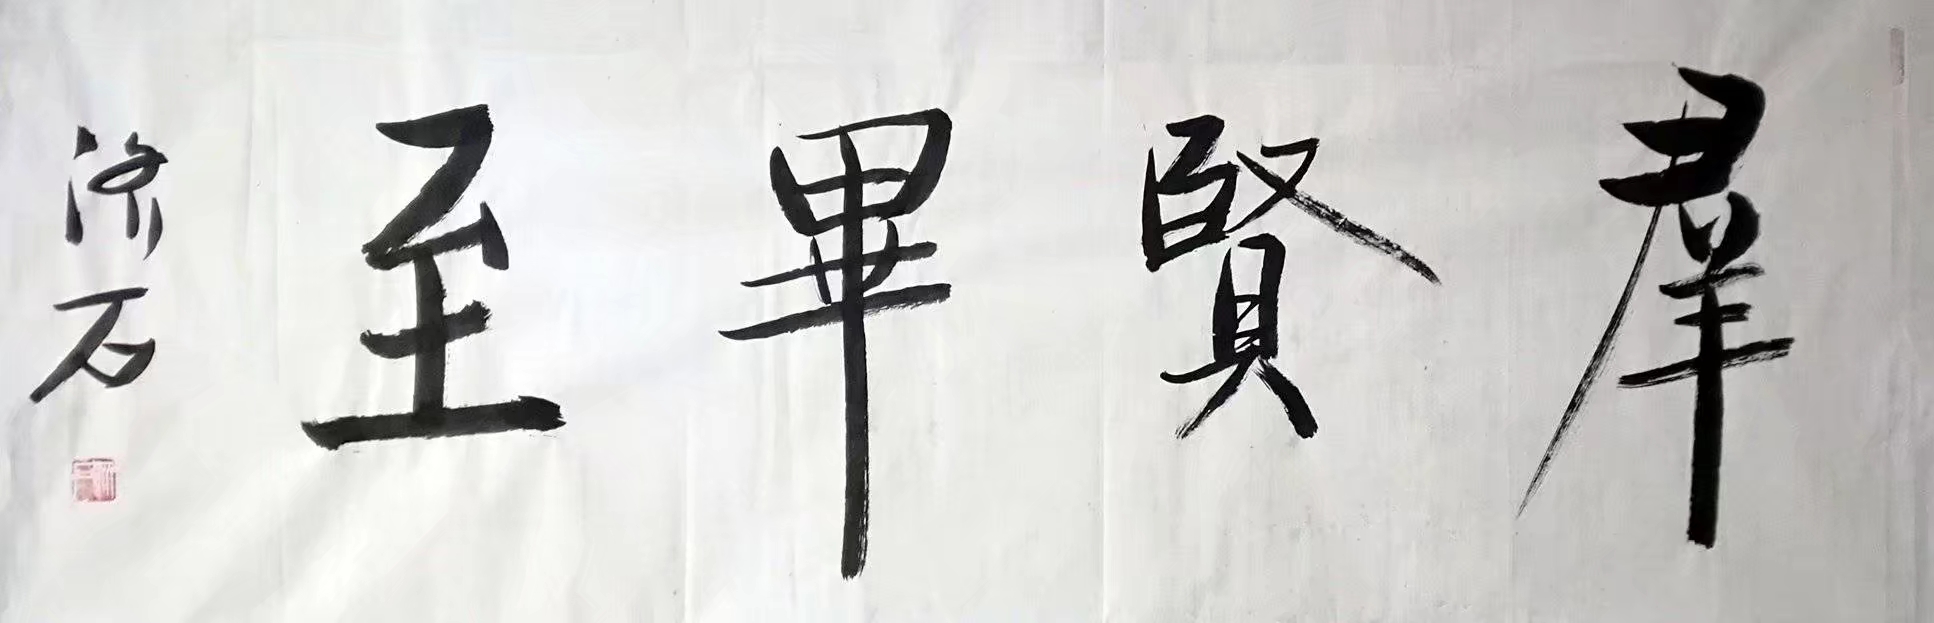 羣賢畢至
濟石